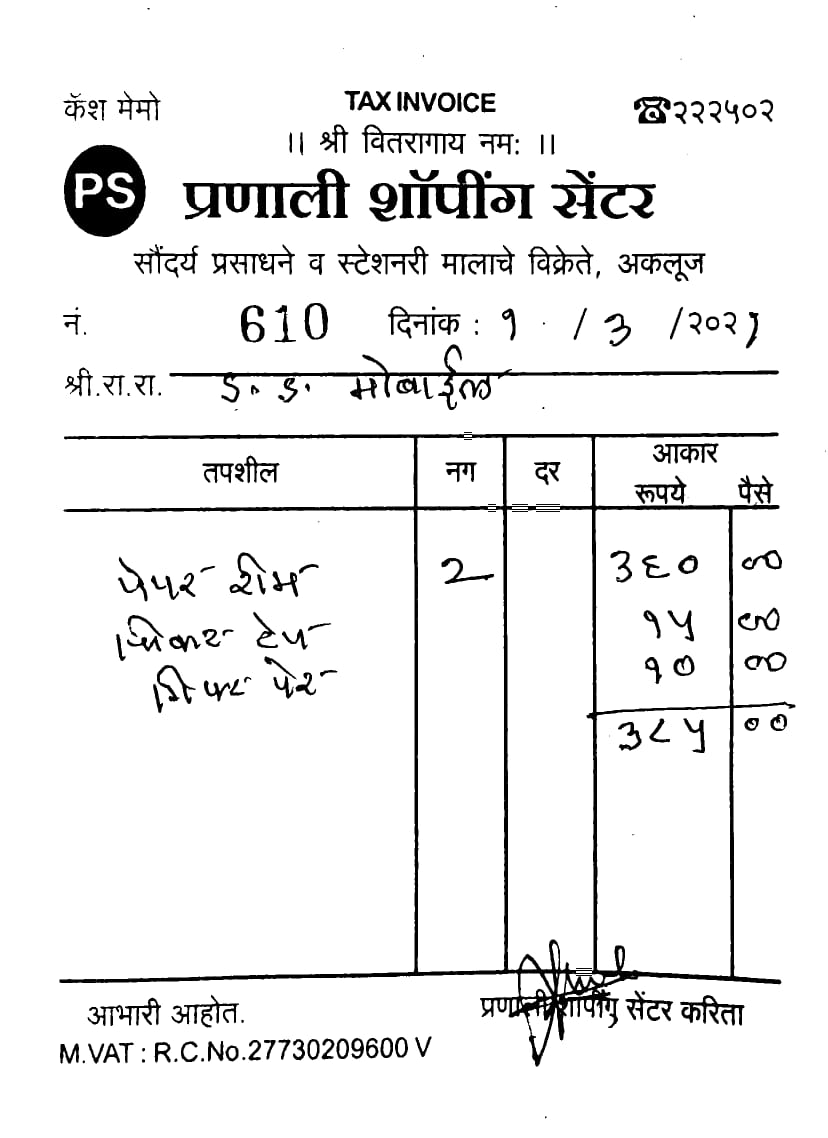 कॅश मेमो TAX INVOICE ☎२२२५०२
।। श्री वितरागाय नम: ।।
PS प्रणाली शॉपींग सेंटर
सौंदर्य प्रसाधने व स्टेशनरी मालाचे विक्रेते, अकलूज
नं. 610 दिनांक : १ / ३ /२०२१
श्री.रा.रा. ड. ड. मोबाईल
तपशील नग दर आकार
रूपये पैसे
पेपर रीम 2 ३६० ००
टेप १५ ००
१० ००
३८५ ००
आभारी आहोत. प्रणाली शापींग सेंटर करिता
M.VAT : R.C.No.27730209600 V